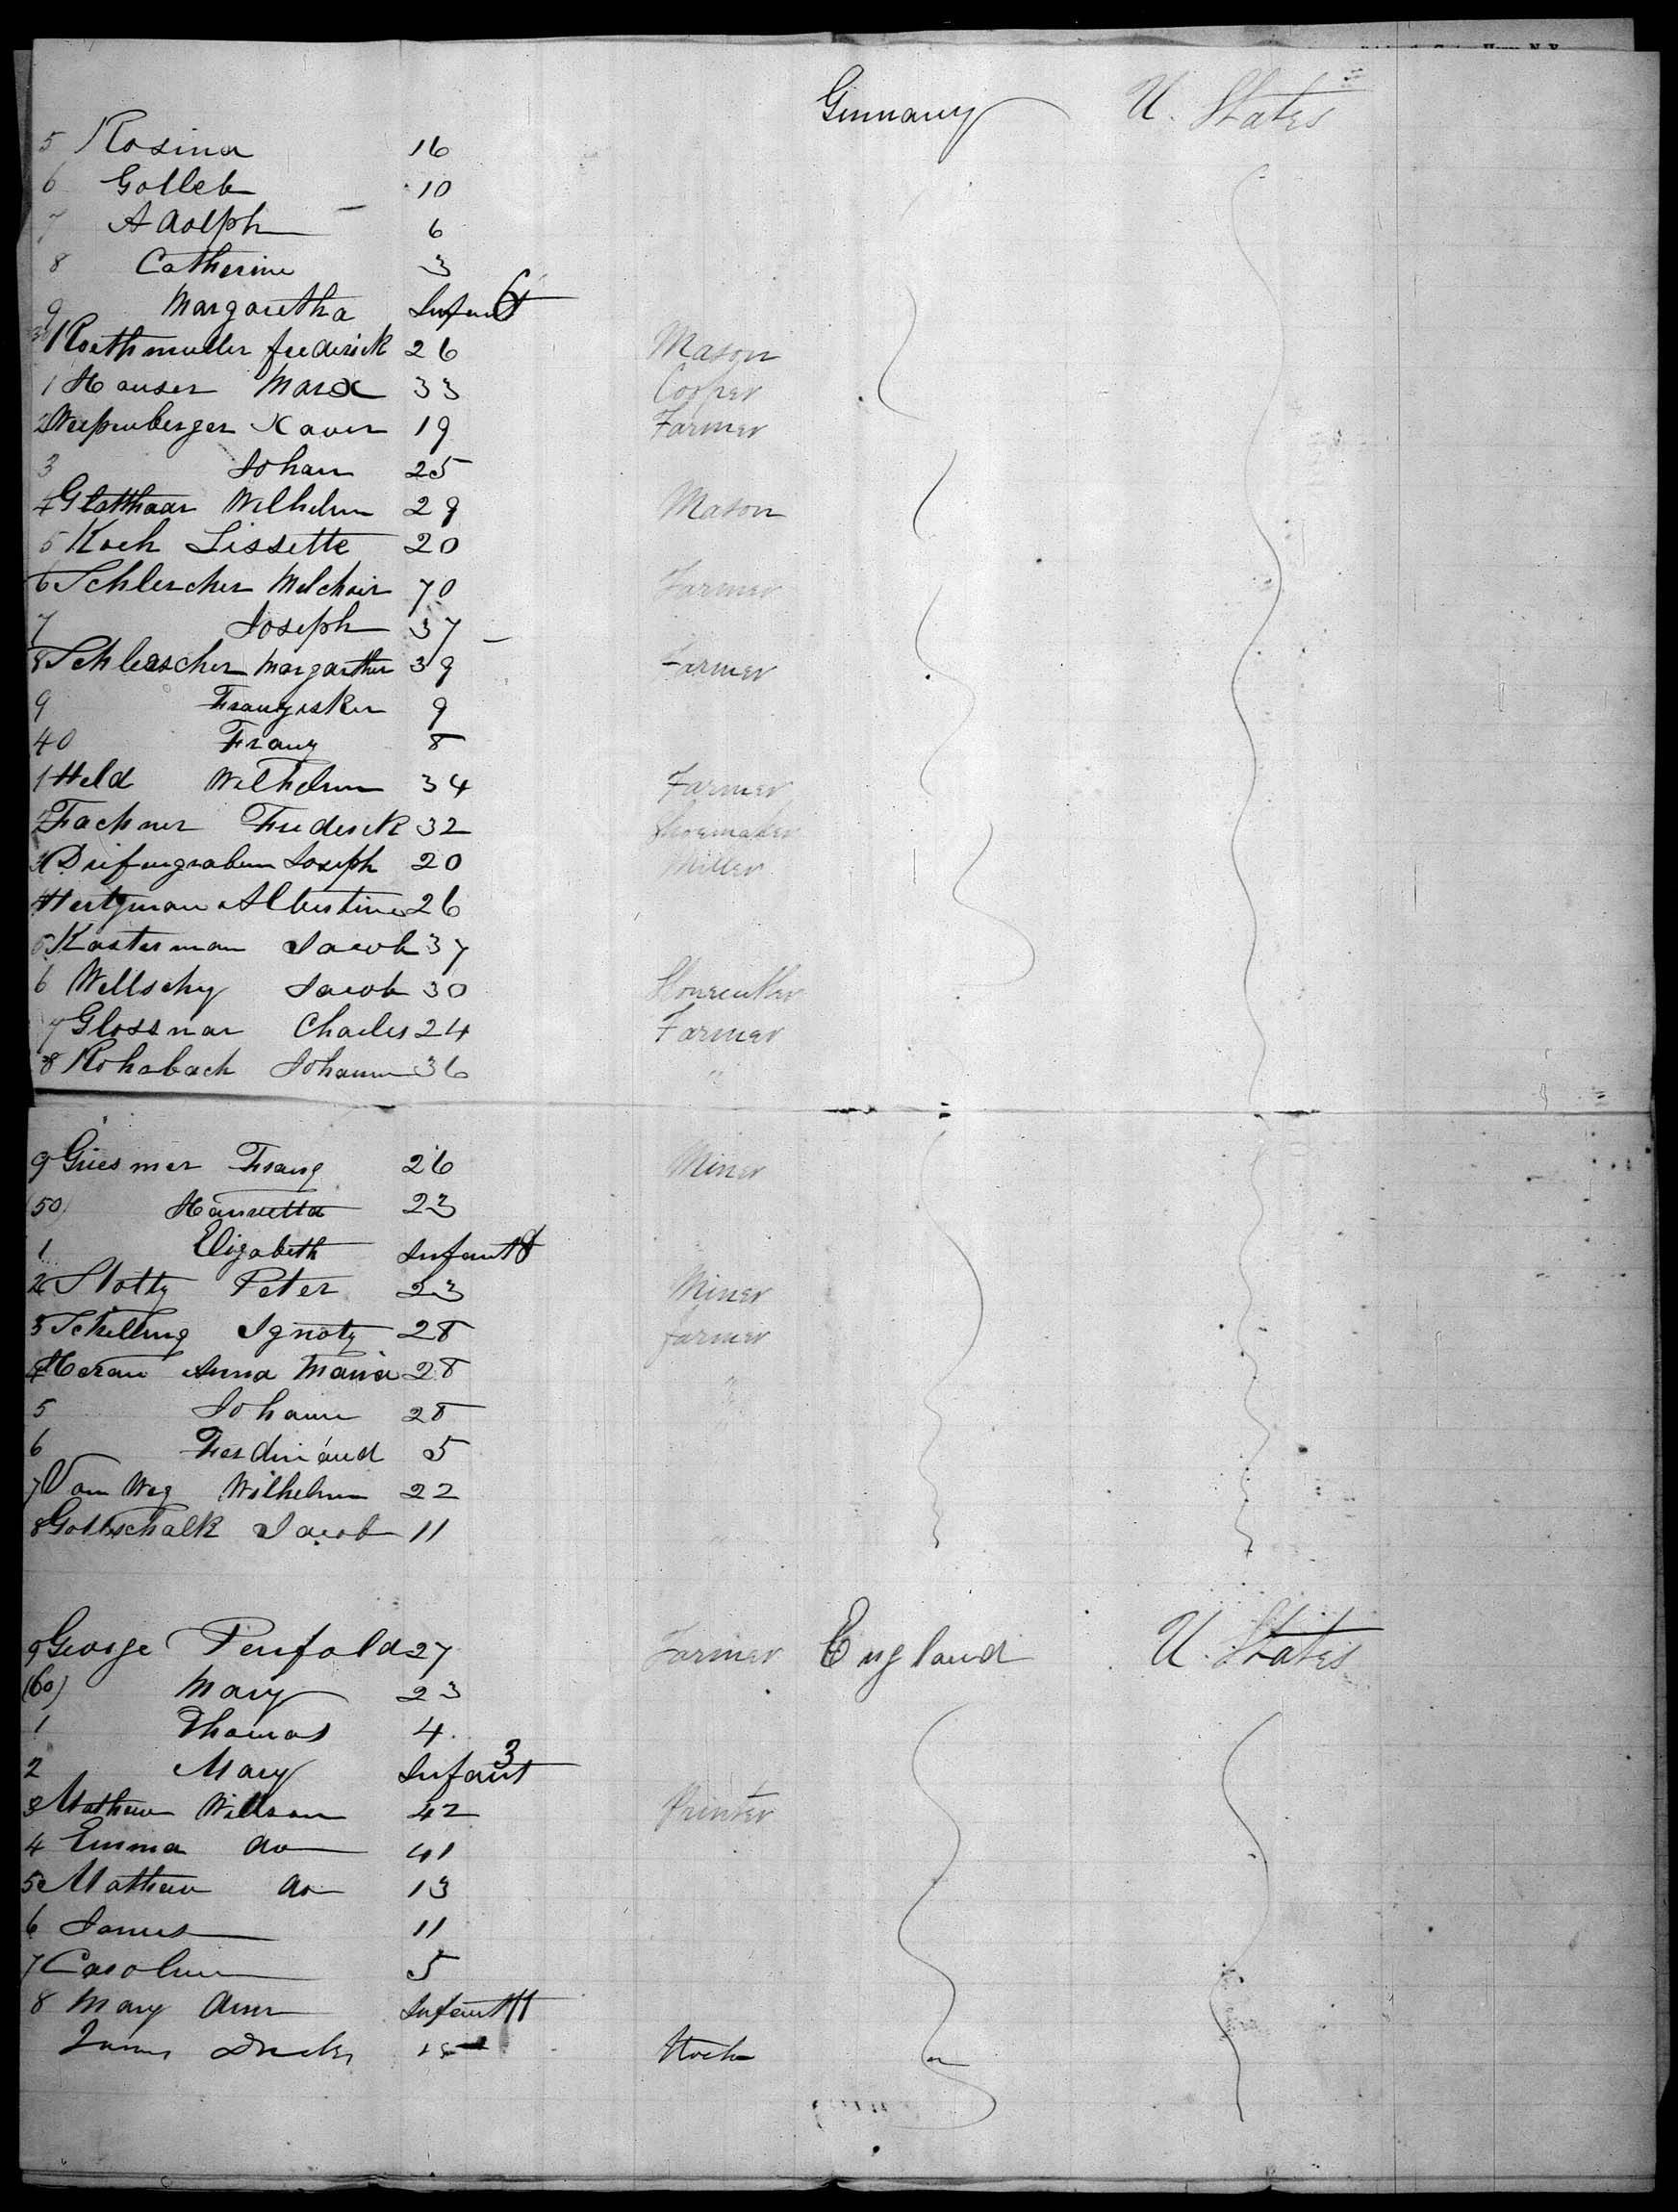 Germany U. States
5 Rosina 16
6 Gotleb 10
7 Adolph 6
8 Catherine 3
9 Margaretha Infant 6
30 Roethmuller frederick 26 Mason
1 Hauser Marx 33 Cooper
2 Xaver 19 Farmer
3 Johan 25
4 Glatthaar Wilhelm 29 Mason
5 Koch Lissette 20
6 Schlercher Melchoir 70 Farmer
7 Joseph 37
8 Schlerscher Margartha 39 Farmer
9 Franziska 9
40 Franz 8
1 Held Wilhelm 34 Farmer
2 Fachner Frederick 32 Shoemaker
3 Joseph 20 Miller
4 Hertzman Albertine 26
5 Kasterman Jacob 37
6 Wellschy Jacob 30 Stonecutter
7 Glossman Charles 24 Farmer
8 Rohrbach Johann 36 "
9 Griesmer Franz 26 Miner
(50) Henrietta 23
1 Elizabeth Infant 8
2 Slotty Peter 23 Miner
3 Schilling Ignatz 28 farmer
4 Heran Anna Maria 28 "
5 Johann 28
6 Ferdinand 5
7 Vom Weg Wilhelm 22
8 Gottschalk Jacob 11 "
9 George Penfold 27 Farmer England U. States
(60) Mary 23
1 Thomas 4
2 Mary Infant 3
3 Mathew Willson 42 Printer
4 Emma do 41
5 Mathew do 13
6 James 11
7 Caroline 5
8 Mary Ann Infant 11
James